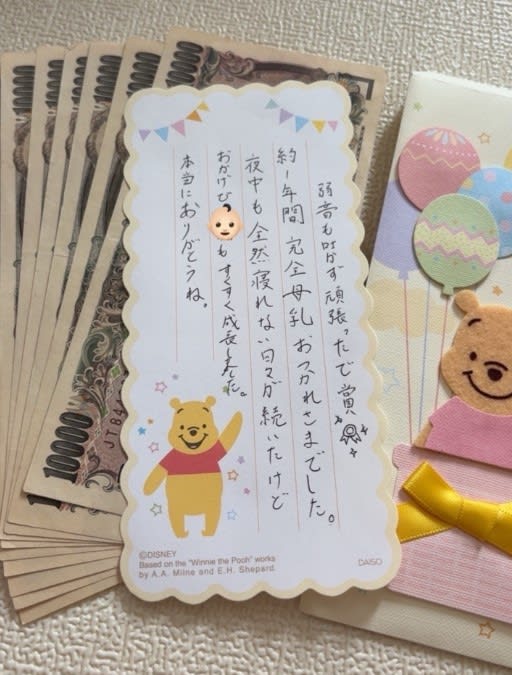 弱音も吐かず頑張ったで賞
約1年間 完全母乳 おつかれさまでした。
夜中も全然寝れない日々が続いたけど
おかげで👶もすくすく成長しました。
本当にありがとうね。
©DISNEY
Based on the "Winnie the Pooh" works
by A.A. Milne and E.H. Shepard
DAISO
10000
10000